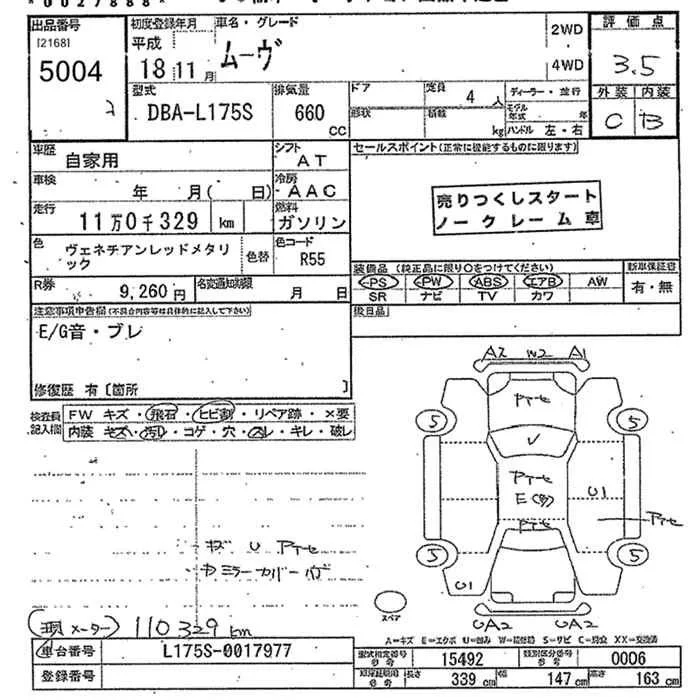 *0027888*
出品番号
[2168]
5004
初度登録年月
平成
18 11月
車名・グレード
ムーヴ
2WD
4WD
評価点
3.5
外装 内装
C B
型式
DBA-L175S
排気量
660
CC
ドア
形状
定員
4人
積載
kg
ディーラー・並行
モデル年式 年
ハンドル 左・右
車歴
自家用
シフト
AT
セールスポイント(正常に機能するものに限ります)
車検
年 月( 日)
冷房
AAC
売りつくしスタート
ノークレーム車
走行
11万0千329 km
燃料
ガソリン
色
ヴェネチアンレッドメタリック
色替
色コード
R55
装備品 (純正品に限り○をつけてください)
新車保証書
PS PW ABS エアB AW
有・無
SR ナビ TV カワ
R券
9,260円
名変通知期限
月 日
後日品
注意事項申告欄(不具合内容等は具体的に記入して下さい)
E/G音・ブレ
修復歴 有〔箇所 〕
検査員記入欄
FW キズ・飛石・ヒビ割・リペア跡・×要
内装 キズ・汚れ・コゲ・穴・スレ・キレ・破レ
A2 W2 A1
5
5
アテセ
アテセ
U1
アテセ
アテセ
キズ U アテセ
5
5
U1
UA2
UA2
スペア
現 メーター 110329 km
A=キズ E=エクボ U=凹み S=サビ XX=交換済
車台番号
L175S-0017977
登録番号
型式指定番号
参考
15492
類別区分番号
参考
0006
長さ
339 cm
幅
147 cm
高さ
163 cm